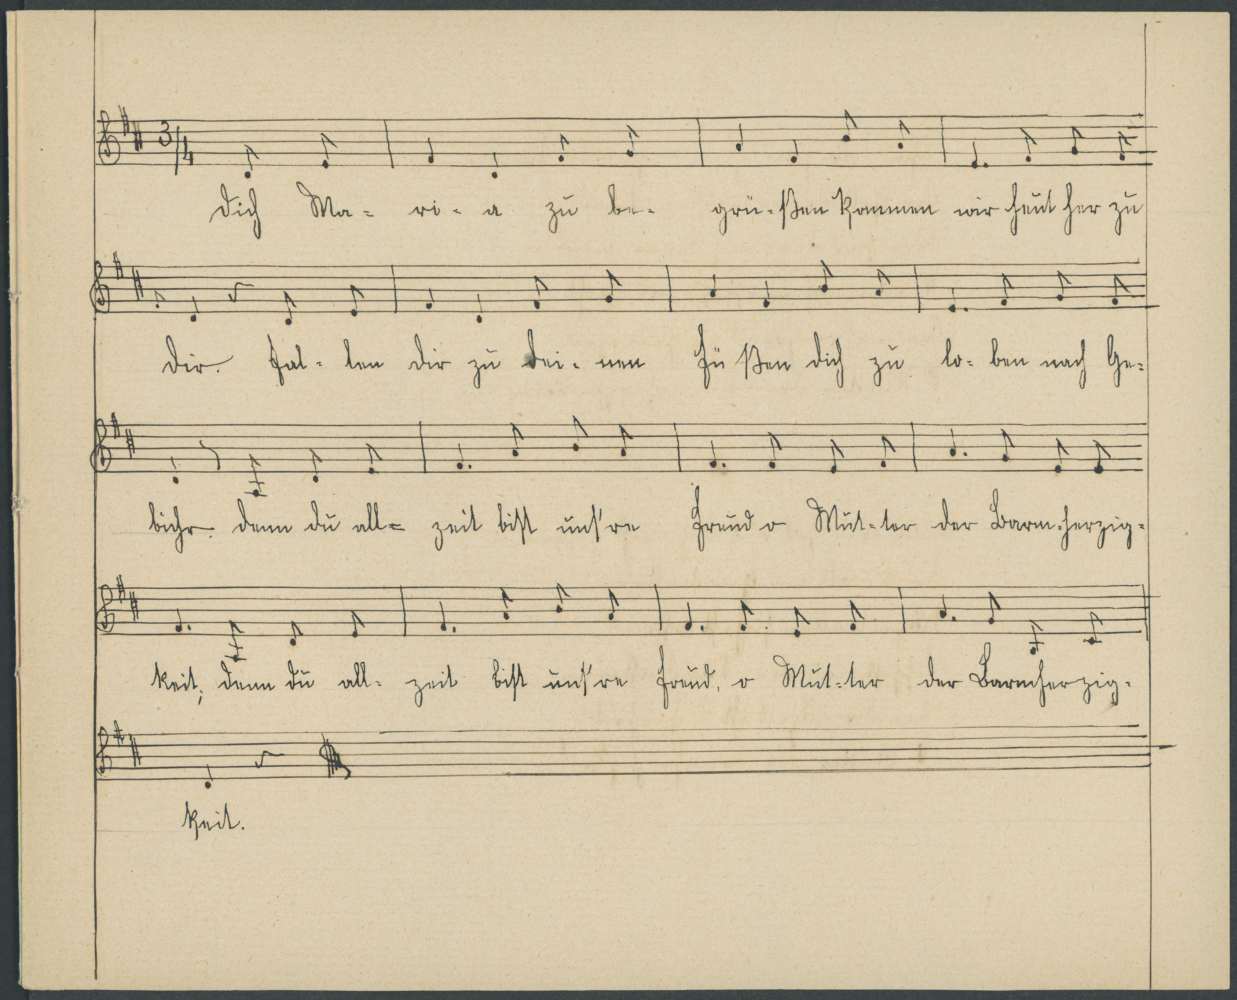 3/4
Dich Ma- ri- a zu be- grü-ßen kommen wir heut her zu
dir. Fal- len dir zu dei- nen Fü ßen dich zu lo- ben nach Ge-
bühr. denn du all= zeit bist uns're Freud o Mut-ter der Barm-herzig-
keit; denn du all- zeit bist uns're Freud, o Mut-ter der Barmherzig-
keit.